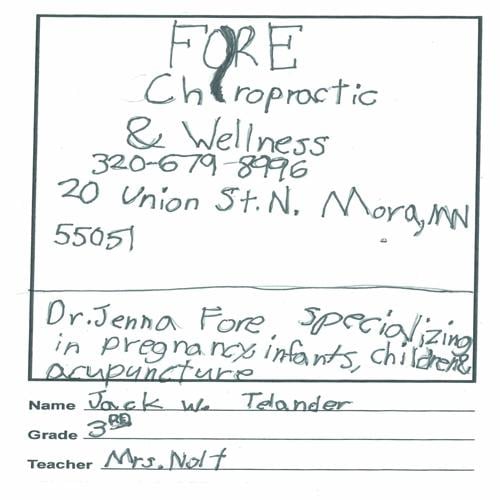 FORE
Chiropractic
& Wellness
320-679-8996
20 Union St. N. Mora, MN
55051
Dr. Jenna Fore specializing
in pregnancy infants, children &
acupuncture
Name Jack W. Telander
Grade 3RD
Teacher Mrs. Nolt